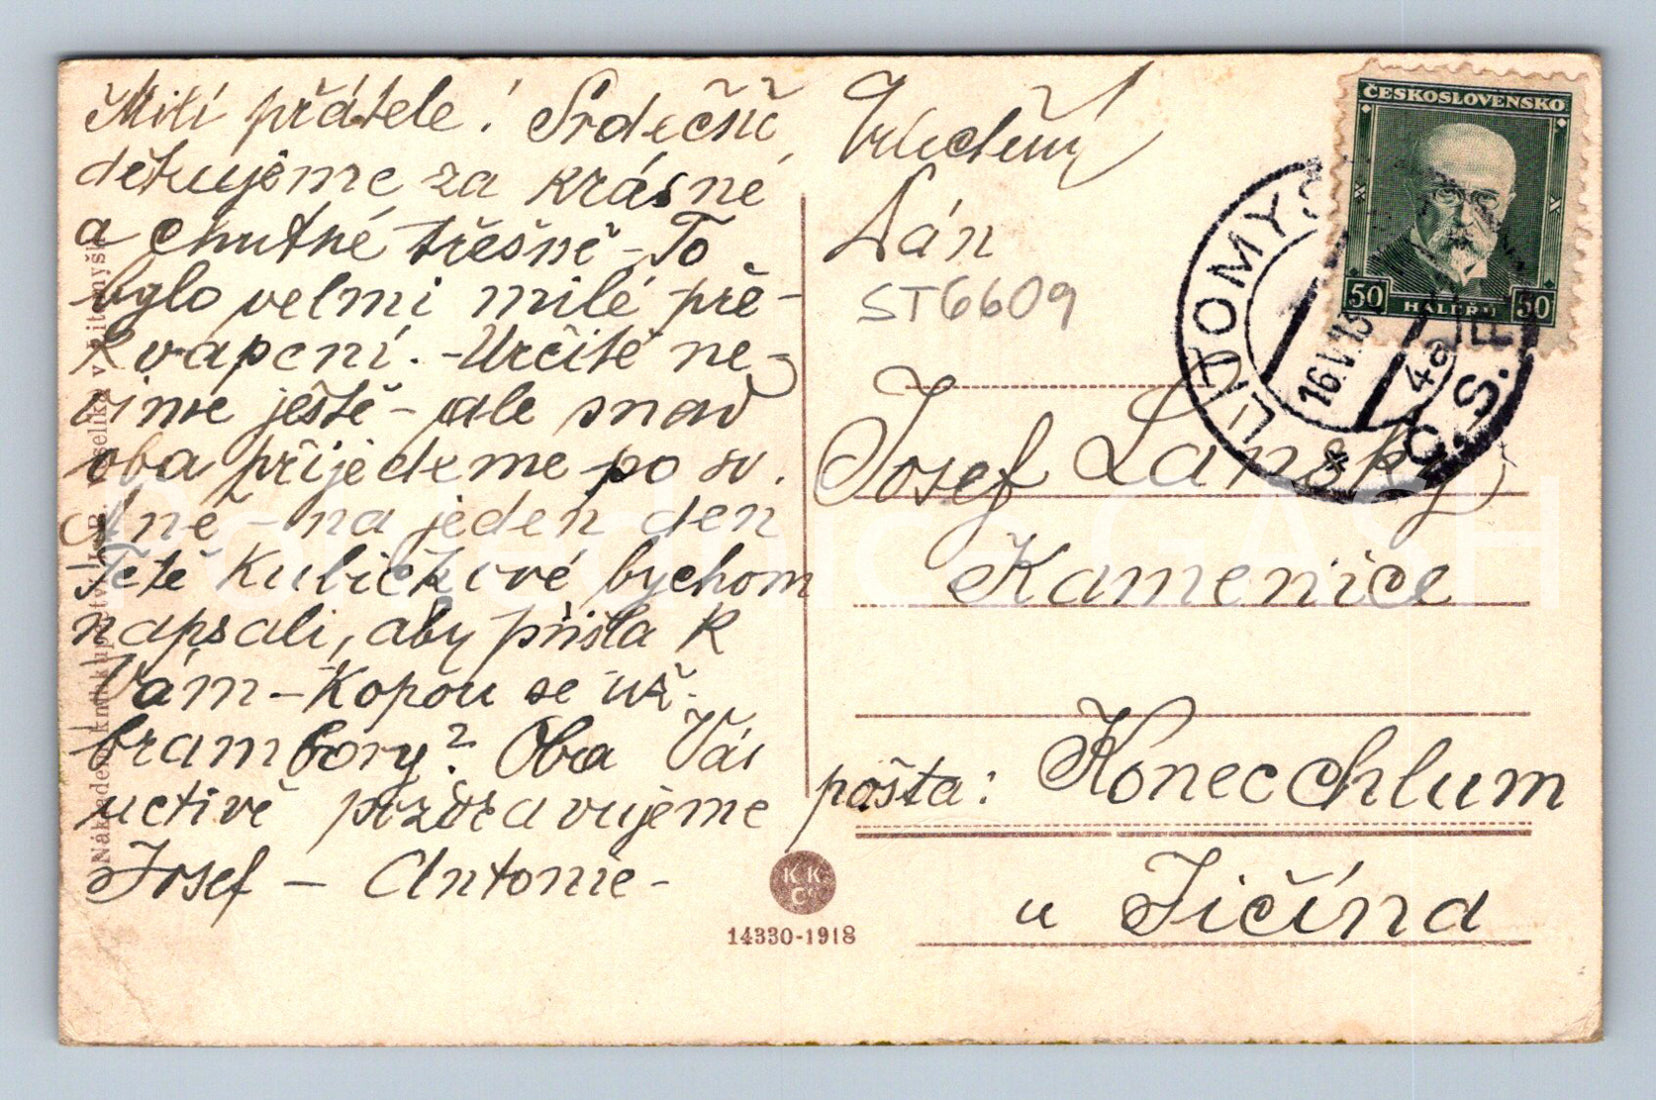 Milí přátele! Srdečně
děkujeme za krásné
a chutné třešně - To
bylo velmi milé pře-
kvapení. - Určitě ne-
víme ještě - ale snad
oba přijedeme po sv.
Anně - na jeden den
Tetě Kubíčkové bychom
napsali, aby přišla k
Vám - Kopou se už
brambory? Oba Vás
uctivě pozdravujeme
Josef - Antonie -
Pán
ST6609
Josef Lanský
Kamenice
pošta: Konecchlum
u Jičína
ČESKOSLOVENSKO
50 HALÉŘŮ 50
LITOMYŠ
16.V
4a
Č.S.R.
K K
Co
14330-1918